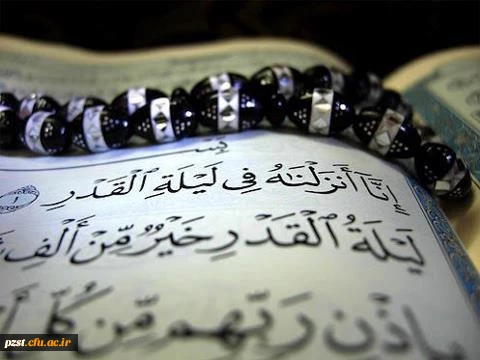 إِنَّا أَنزَلْنَاهُ فِي لَيْلَةِ الْقَدْرِ ١
لَيْلَةُ الْقَدْرِ خَيْرٌ مِّنْ أَلْفِ
بِإِذْنِ رَبِّهِم مِّن كُلِّ
pzst.cfu.ac.ir